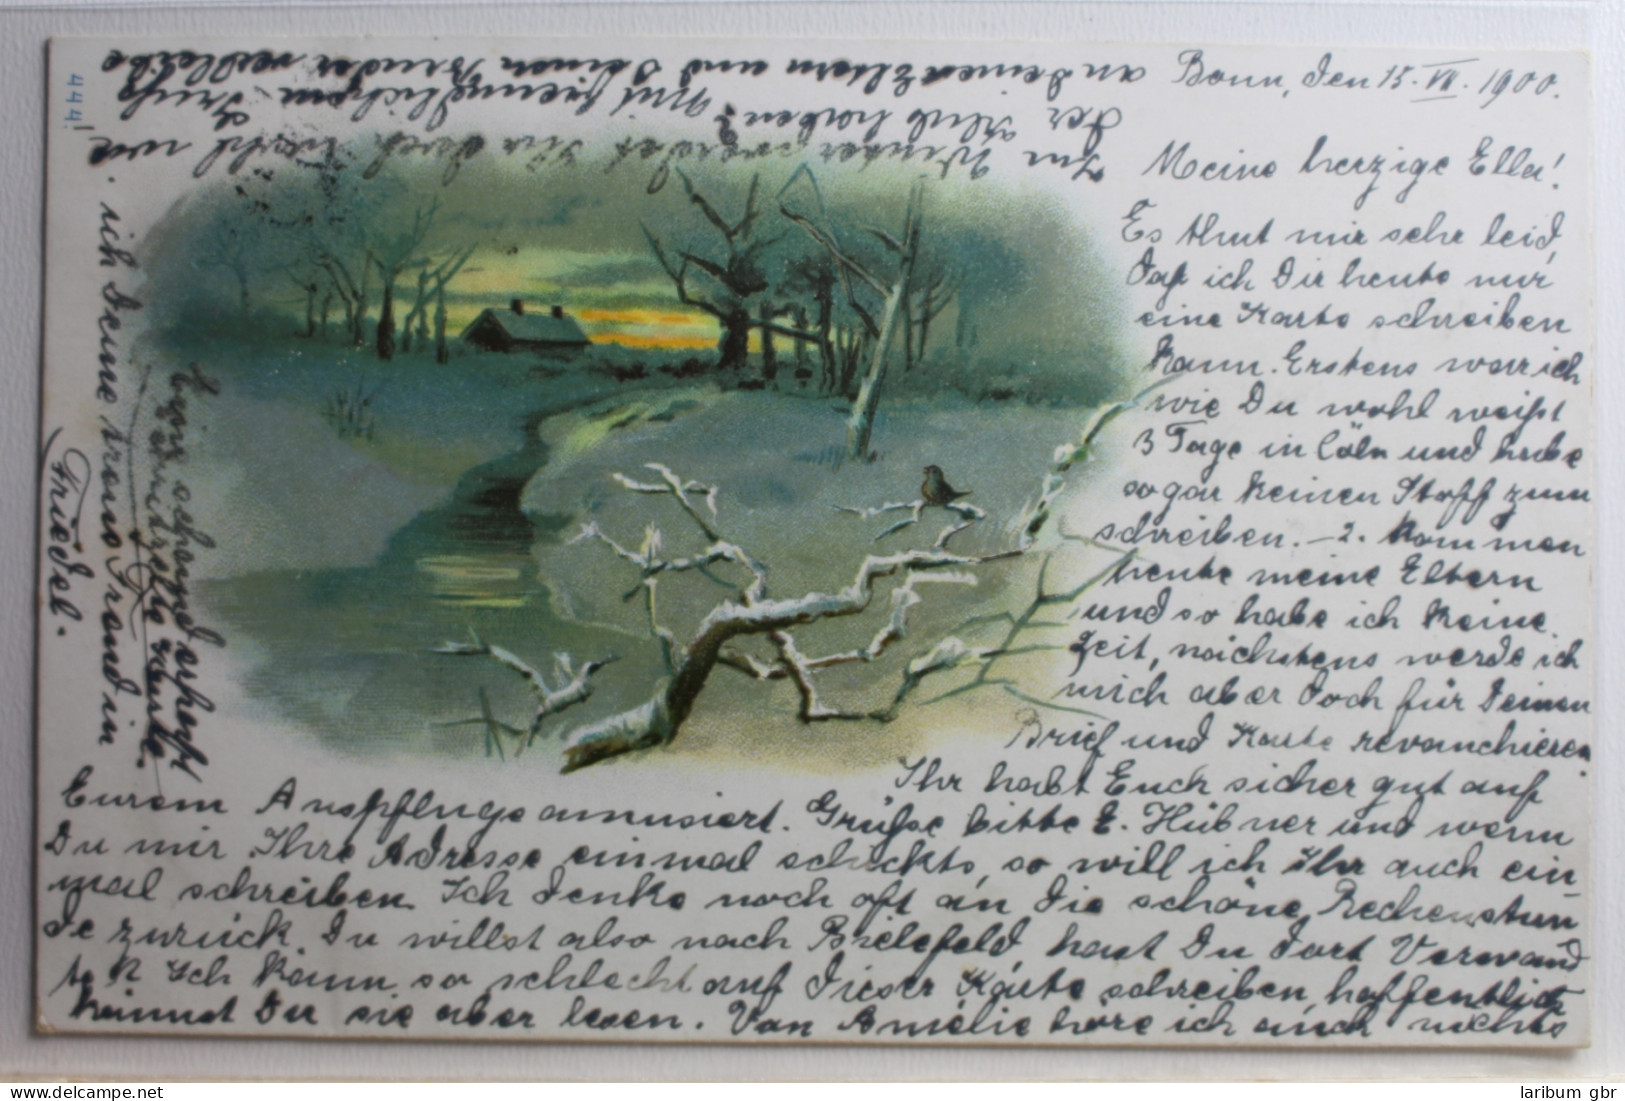 Bonn, den 15. VII. 1900.
Meine herzige Ella!
Es thut mir sehr leid,
daß ich Dir heute nur
eine Karte schreiben
kann. Erstens war ich
wie Du wohl weißt
3 Tage in Cöln und habe
sogar keinen Stoff zum
schreiben. – 2. kommen
heute meine Eltern
und so habe ich keine
Zeit, nächstens werde ich
mich aber doch für Deinen
Brief und Karte revanchieren
Ihr habt Euch sicher gut auf
Eurem Auspfluge amusiert. Grüße bitte E. Hübner und wenn
Du mir Ihre Adresse einmal schickts, so will ich Ihr auch ein-
mal schreiben. Ich denke noch oft an die schöne Rechenstun
de zurück. Du willst also nach Bielefeld, hast Du dort Verwand
te? Ich kann so schlecht auf dieser Karte schreiben, hoffentlich
kannst Du sie aber lesen. Von Amelie höre ich auch nichts
Im Winter werdet Ihr doch wohl wie
der Club haben? Mit freundlichem Gruß
an Deinen Eltern und Deinen Bruder verbleibe
ich Deine treue Freundin
Friedel.
444!
laribum gbr